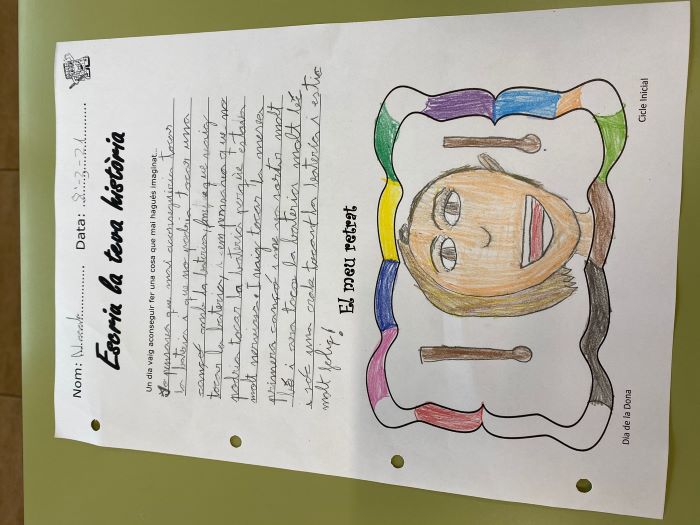 Nom: Data: 8-3-21
Escriu la teva història
Un dia vaig aconseguir fer una cosa que mai hagués imaginat...
Jo pensava que mai aconseguiria tocar
la bateria i que no podria tocar una
cançó amb la bateria, fins que vaig
tocar la bateria i em pensava que no
podria tocar la bateria perquè estava
molt nerviosa. I vaig tocar la meva
primera cançó i me va sortir molt
bé i ara toco la bateria molt bé
i sóc una crack tocant la bateria i estic
molt feliç!
El meu retrat
Dia de la Dona
Cicle Inicial